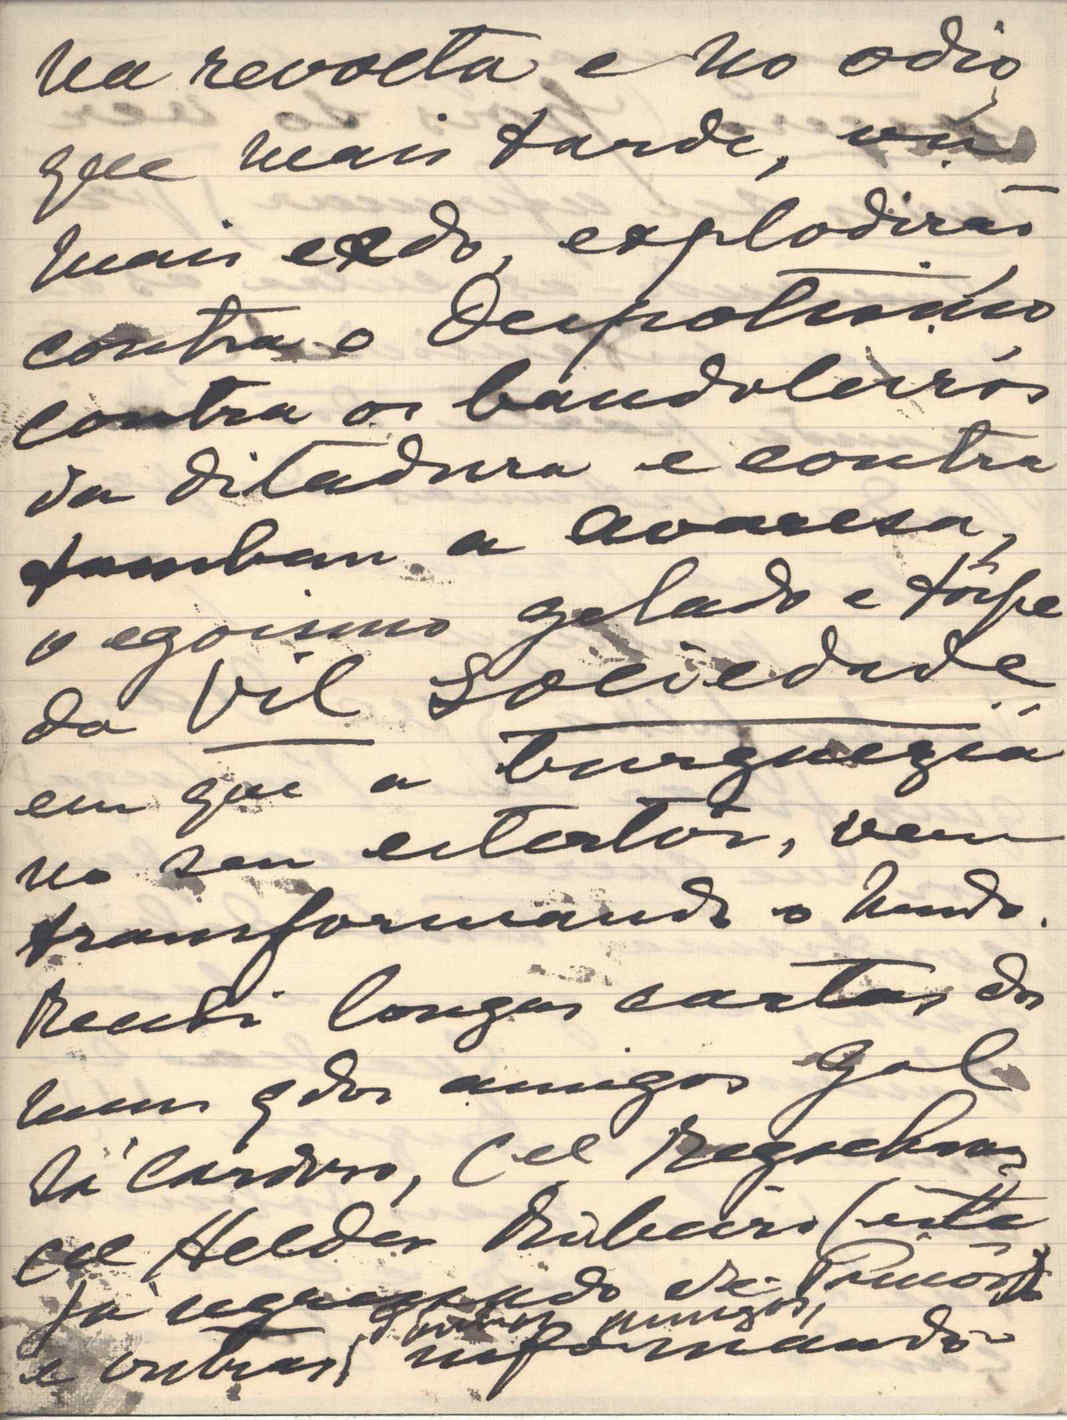 na revolta e no odio
que mais tarde, ou
mais cedo, explodirão
contra o Despotismo
contra os bandoleiros
da ditadura e contra
tambem a avareza,
o egoismo gelado e tôrpe
da Vil Sociedade
em que a burguezia
no seu estertôr, vem
transformando o Mundo.
Recebi longas cartas dos
meus gdes amigos Gal
Sá Cardoso, Cel
Cel Helder Ribeiro (este
já regressado de
e outros amigos,
informando